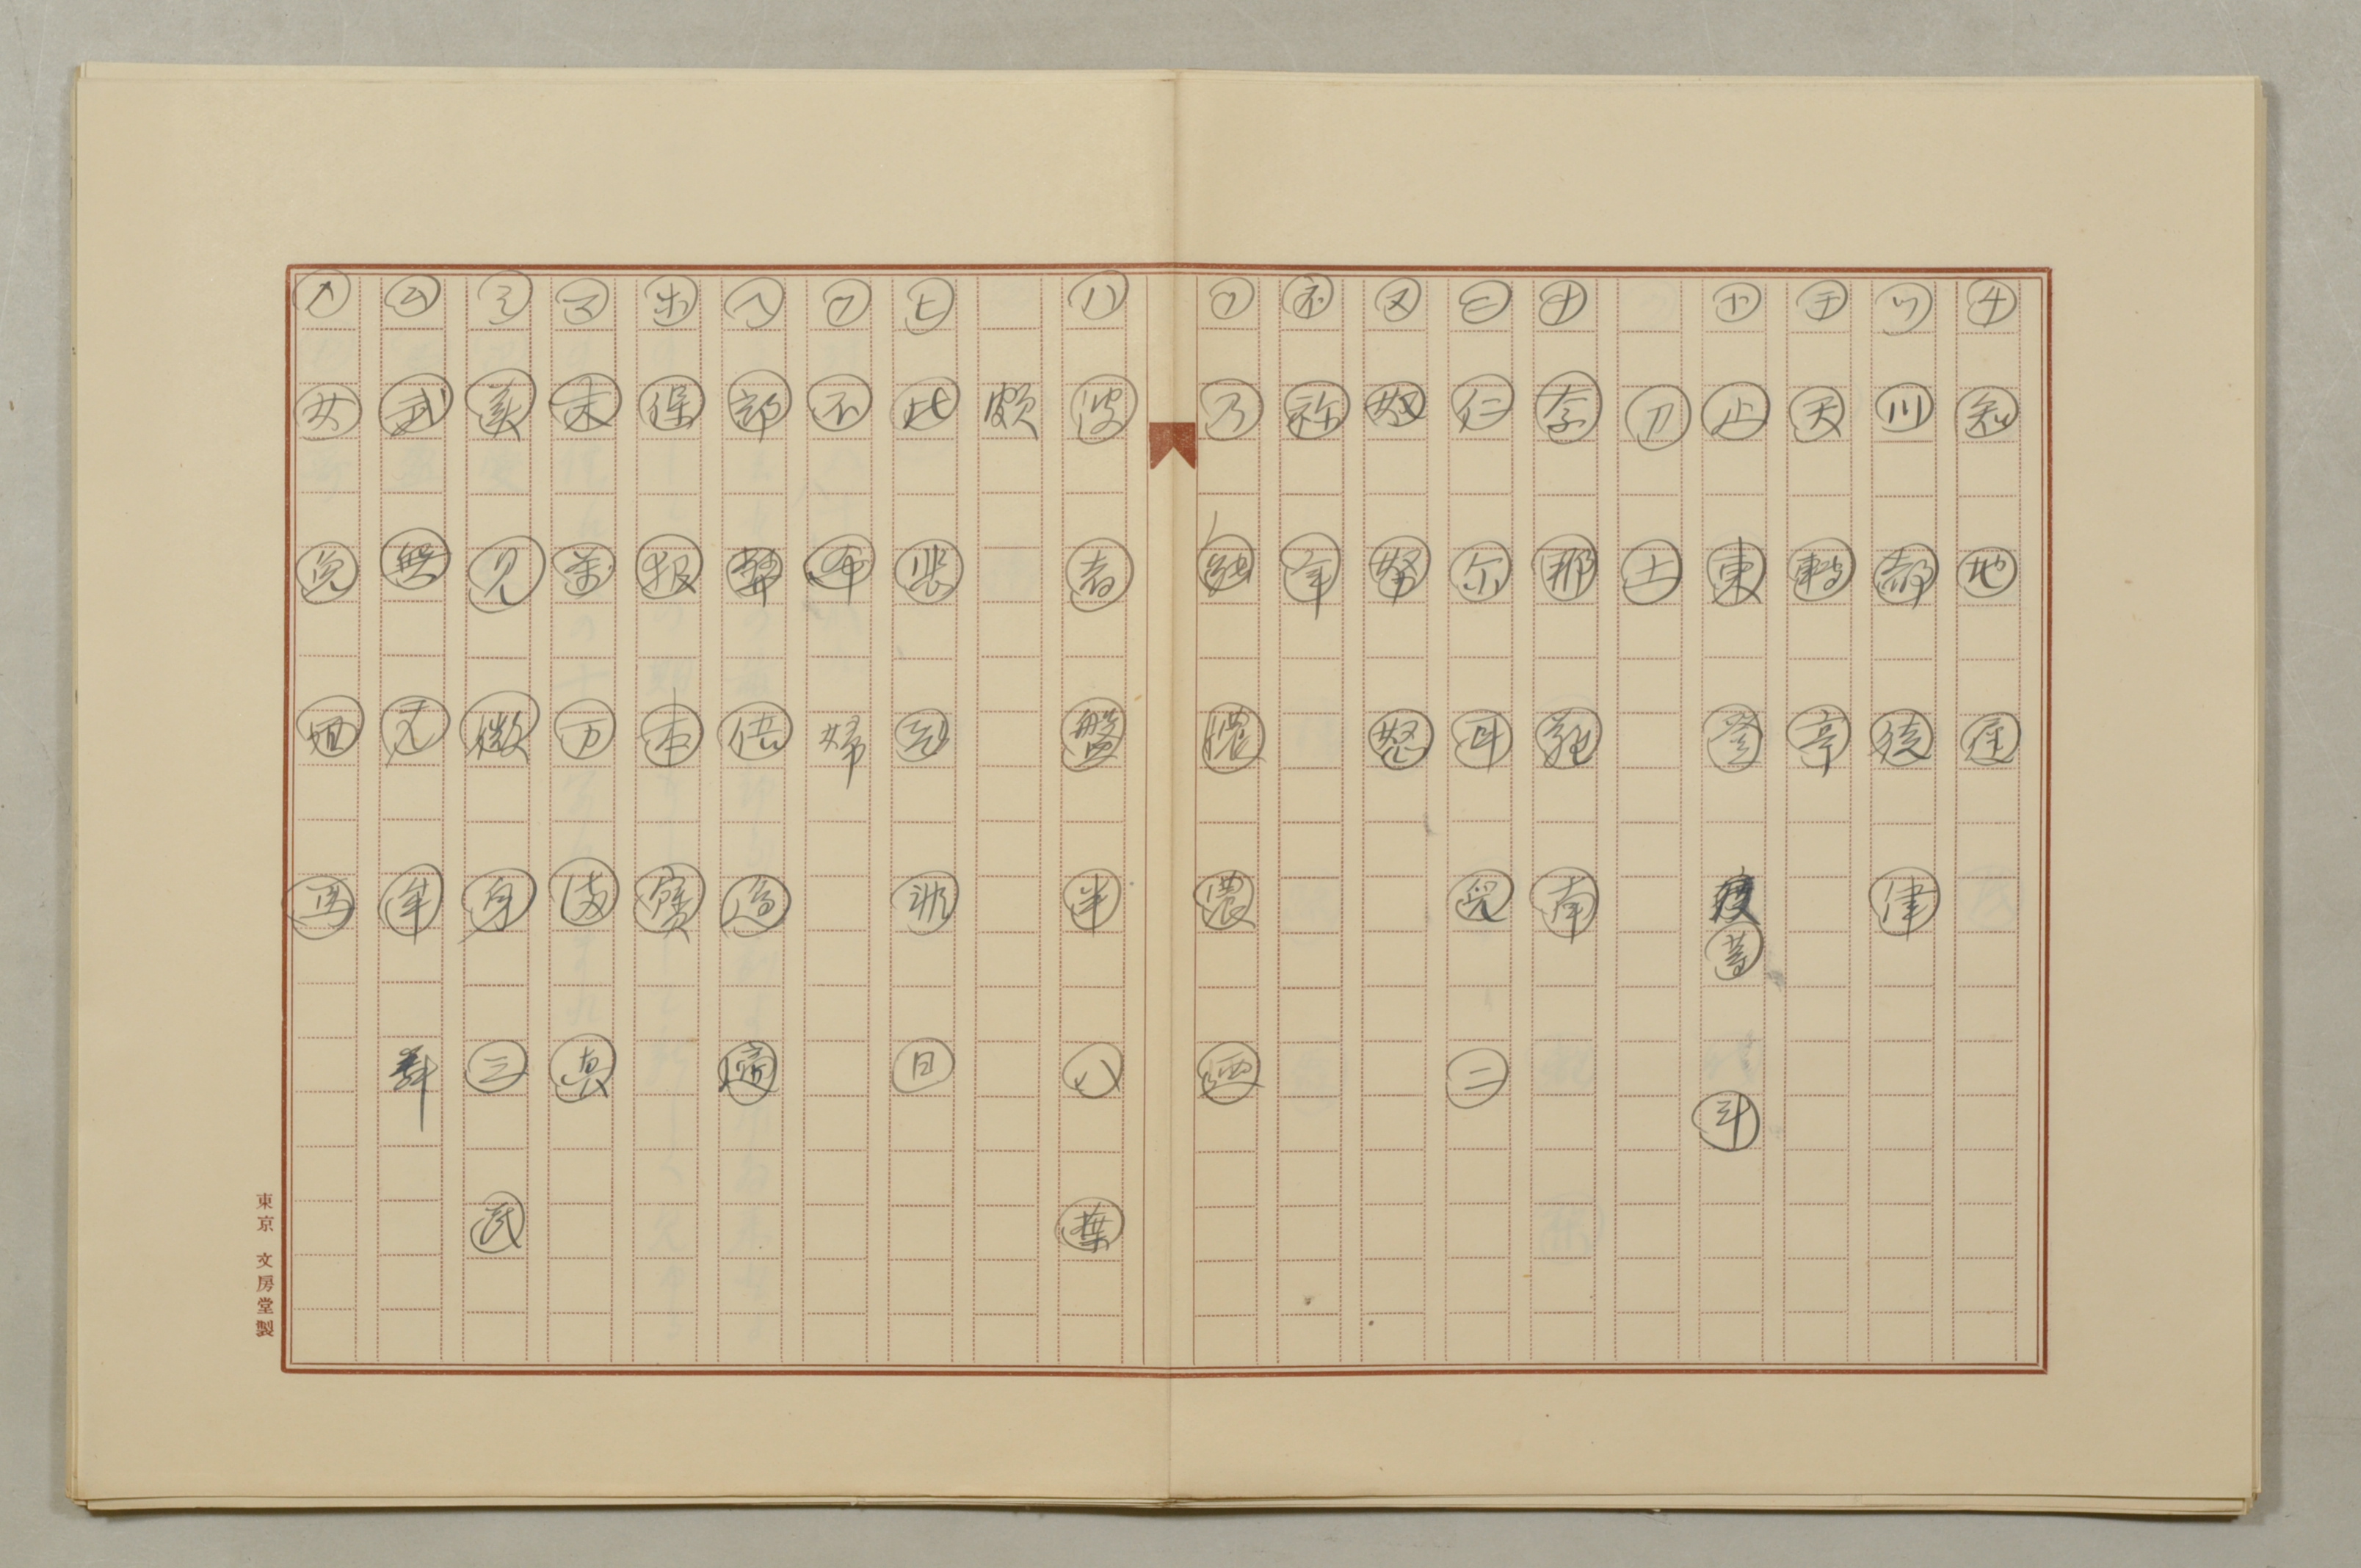 チ 知 地 庢
ツ 川 都 徒 津
テ 天 轉 亭
ト 止 東 登 等 斗
刀 土
ナ 奈 那 難 南
ニ 仁 尓 耳 児 二
ヌ 奴 努 怒
ネ 祢 年
ノ 乃 能 濃 農 廼
ハ 波 者 盤 半 八 葉
頗
ヒ 比 悲 飛 日
フ 不 布 婦
へ 部 弊 倍 遍
ホ 保 報 本 寶
マ 末 萬 万 満 真
ミ 美 見 微 身 三 民
ム 武 無 无 牟
メ 女 免 馬
東京 文房堂製